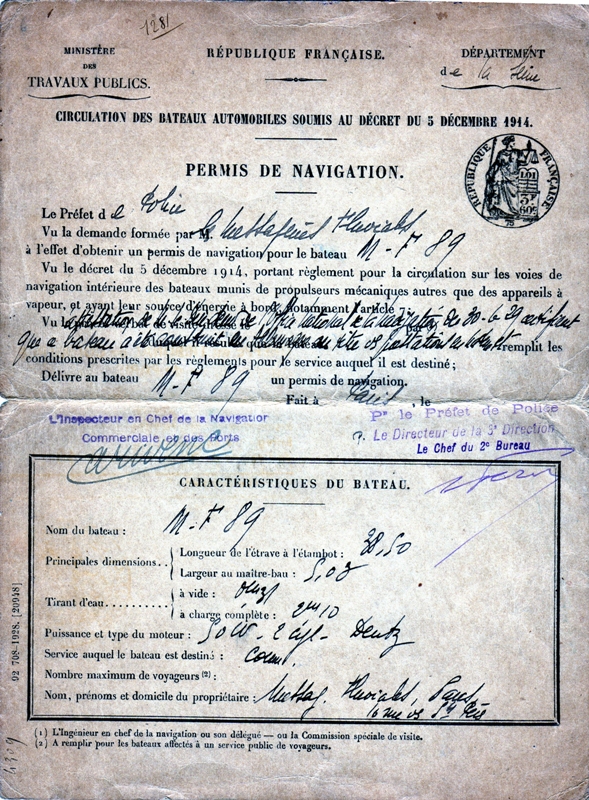 1281
MINISTÈRE
DES
TRAVAUX PUBLICS.
RÉPUBLIQUE FRANÇAISE.
DÉPARTEMENT
de la Seine
CIRCULATION DES BATEAUX AUTOMOBILES SOUMIS AU DÉCRET DU 5 DÉCEMBRE 1914.
RÉPUBLIQUE FRANÇAISE
LOI
3F
60c
75
PERMIS DE NAVIGATION.
Le Préfet de Police
Vu la demande formée par M. la Messageries Fluviales
à l'effet d'obtenir un permis de navigation pour le bateau M-F 89
Vu le décret du 5 décembre 1914, portant règlement pour la circulation sur les voies de
navigation intérieure des bateaux munis de propulseurs mécaniques autres que des appareils à
vapeur, et ayant leur source d'énergie à bord, notamment l'article 7;
Vu la
que a bateau remplit les
conditions prescrites par les règlements pour le service auquel il est destiné;
Délivre au bateau M-F 89 un permis de navigation.
Fait à Paris, le
L'Inspecteur en Chef de la Navigation
Commerciale et des Ports
Pr le Préfet de Police
P. Le Directeur de la 3e Direction
Le Chef du 2e Bureau
CARACTÉRISTIQUES DU BATEAU.
Nom du bateau : M-F 89
Principales dimensions...
Longueur de l'étrave à l'étambot : 38,50
Largeur au maître-bau : 5,03
Tirant d'eau..........
à vide :
à charge complète : 2m10
Puissance et type du moteur : 50 cv - 2 cyl - Deutz
Service auquel le bateau est destiné : Comm.
Nombre maximum de voyageurs (2) :
Nom, prénoms et domicile du propriétaire : Messag. Fluviales, Paris
16 rue
(1) L'Ingénieur en chef de la navigation ou son délégué — ou la Commission spéciale de visite.
(2) A remplir pour les bateaux affectés à un service public de voyageurs.
92 708-1928. [20948]
4309